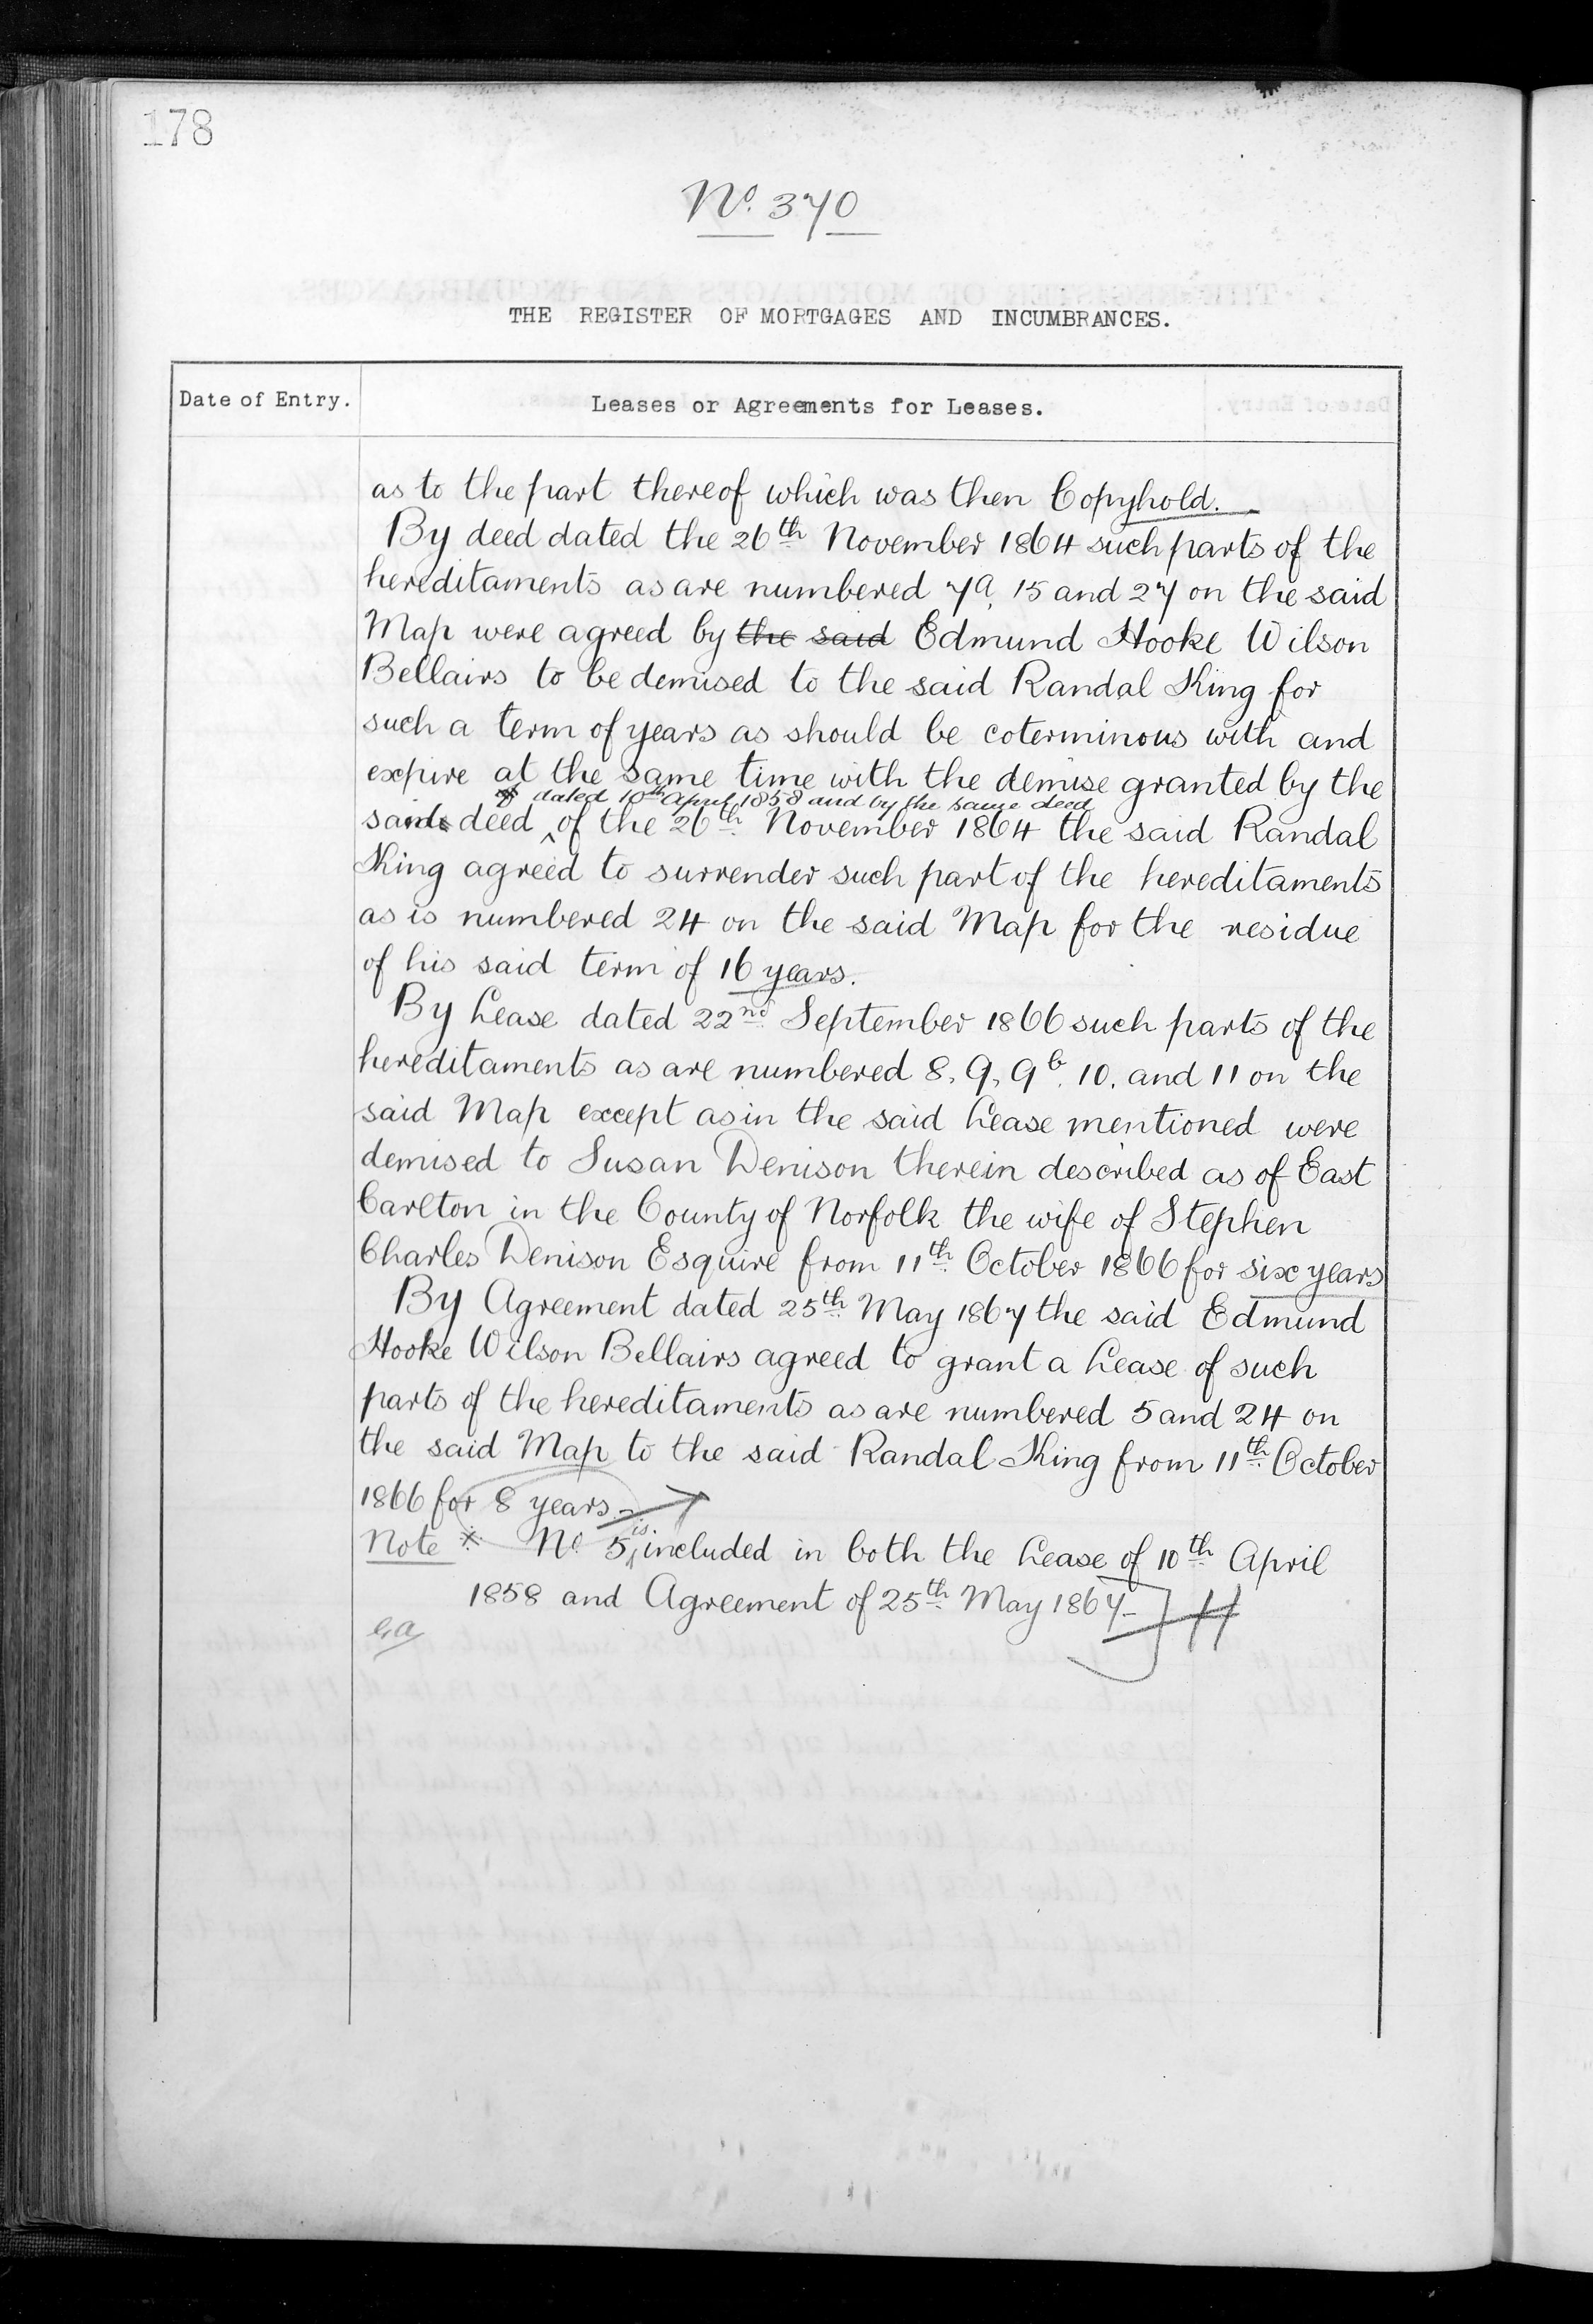 178
No. 370
THE REGISTER OF MORTGAGES AND INCUMBRANCES.
Date of Entry.
Leases or Agreements for Leases.
as to the part thereof which was then Copyhold.
By deed dated the 26th November 1864 such parts of the
hereditaments as are numbered 7a, 15 and 27 on the said
Map were agreed by the said Edmund Hooke Wilson
Bellairs to be demised to the said Randal King for
such a term of years as should be coterminous with and
expire at the same time with the demise granted by the
dated 10th April 1858 and by the same deed
said deed of the 26th November 1864 the said Randal
King agreed to surrender such part of the hereditaments
as is numbered 24 on the said Map for the residue
of his said term of 16 years.
By Lease dated 22nd September 1866 such parts of the
hereditaments as are numbered 8, 9, 9b, 10, and 11 on the
said Map except as in the said Lease mentioned were
demised to Susan Denison therein described as of East
Carlton in the County of Norfolk the wife of Stephen
Charles Denison Esquire from 11th October 1866 for six years
By Agreement dated 25th May 1867 the said Edmund
Hooke Wilson Bellairs agreed to grant a Lease of such
parts of the hereditaments as are numbered 5 and 24 on
the said Map to the said Randal King from 11th October
1866 for 8 years.
Note * No. 5 is included in both the Lease of 10th April
1858 and Agreement of 25th May 1867